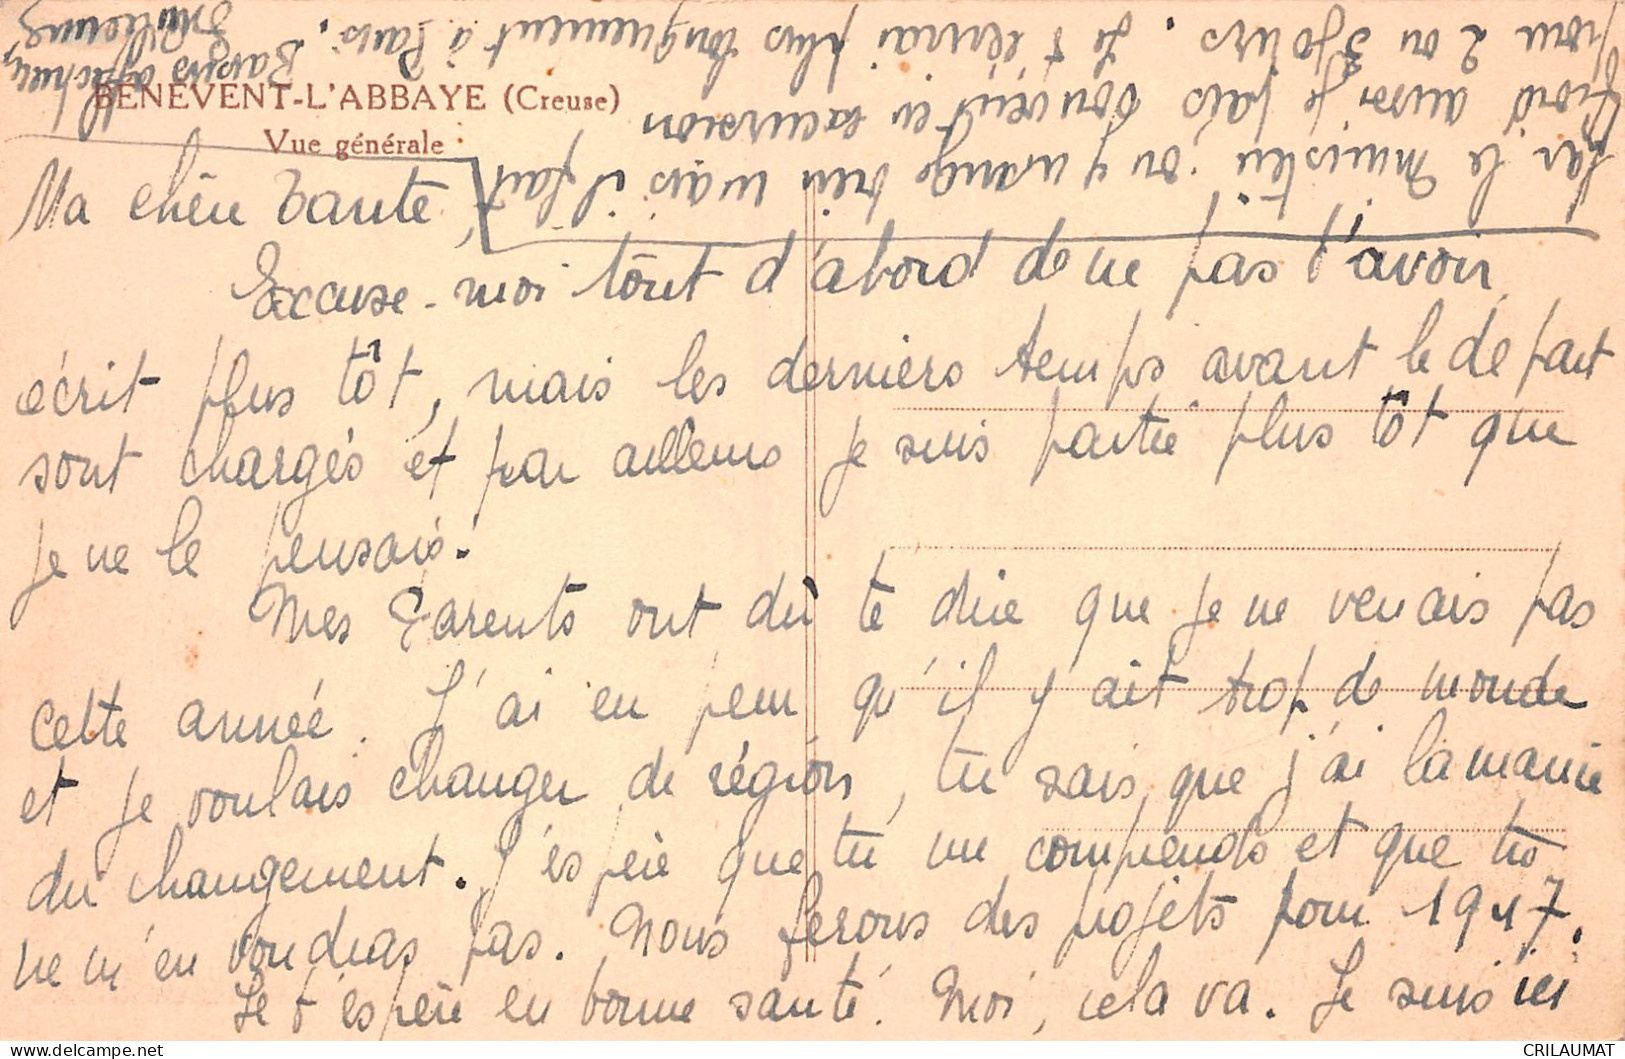 BÉNÉVENT-L'ABBAYE (Creuse)
Vue générale
Ma chère Tante,
Excuse-moi tout d'abord de ne pas t'avoir
écrit plus tôt, mais les derniers temps avant le départ
sont chargés et par ailleurs je suis partie plus tôt que
je ne le pensais.
Mes Parents ont dû te dire que je ne venais pas
cette année. J'ai eu peur qu'il y ait trop de monde
et je voulais changer de région, tu sais que j'ai la manie
du changement. J'espère que tu me comprends et que tu
ne m'en voudras pas. Nous ferons des projets pour 1947.
Je t'espère en bonne santé. Moi, cela va. Je suis ici
par le Ministère : on y mange bien mais il fait
froid aussi je fais souvent en excursion
pour 2 ou 3 jours. Je t'écrirai plus longuement à Paris. Baisers affectueux